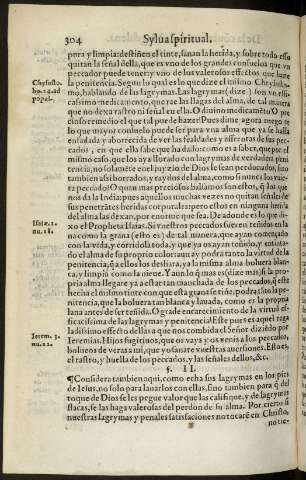 304 Sylua spiritual.
pora y limpia: destiñen el tinte, sanan la herida, y sobre todo esso
quitan la señal della, que es vno de los grandes consuelos que vn
peccador puede tener, y vno de los valerosos effectos que haze
Chrysosto. ho. 14. ad popul.
la penitencia. Segun lo qual es lo que dize el mismo Chrysosto-
mo, hablando de las lagrymas. Las lagrymas (dize) son vn effi-
cacissimo medicamento, que rae las llagas del alma, de tal manera
que no dexa rastro ni señal en ella. O diuino medicamẽto! O pre
cioso remedio el que tal puede hazer! Pues dime agora ruego te
lo que mayor consuelo puede ser para vna alma que ya se halla
enfadada y aborrecida de ver las fealdades y affrentas de sus pec-
cados, en que ella sabe que ha dado: como es a saber, que por el
mismo caso, que los aya llorado con lagrymas de verdadera peni
tencia, no solamẽte con el juyzio de Dios le sean perdonados, sino
tambien assi borrados, y raydos del alma, como si nunca los vuie
ra peccado? O quan mas preciosos balsamos son estos, q̃ los que
nos da la India: pues aquellos muchas vezes no quitan la señal de
sus penetrantes heridas corporales: pero estos en ninguna herida
del alma las dexan, por enorme que sea. De adonde es lo que di-
Isaiæ. 1. nu. 18.
xo el Propheta Isaias. Si vuestros peccados fueren teñidos en la
misma color que la grana (esto es) de tal manera, que ayan
con la veda, y corrido la toda, y que ya os ayan teñido, y
do el alma de su proprio color: aun ay podra tanto la virtud de la
penitencia, q̃ a ellos los deslaua, y a la misma alma boluera blan-
ca, y limpia como la nieue. Y aun lo q̃ mas es (dize mas) si la pro-
pria alma llegare ya a estar tan manchada de los peccados, q̃ este
hecha el mismo tinte con que esta grana se tiñe, podra tãto la pe-
nitencia, que la boluera tan blanca y lauada, como es la propria
lana antes de ser teñida. O grade encarecimiento de la virtud ef-
ficacissima de las lagrymas y penitencia! Este pues es aquel rega
ladissimo effecto della: a que nos combida el Señor diziẽdo por
Ierem. 3. nu. 22.
Ieremias. Hijos fugitiuos, que os vays y os venis a los peccados,
bolueos de veras a mi, que yo sanare vuestras auersiones. Esto es,
el rastro, y huella de los peccados, y las señales dellos, &c.
§. II.
¶ Considera tambien aqui, como echa sus lagrymas en los pies
de Iesus, no solo para lauarlos con ellas, sino tambien para q̃ del
toque de Dios se les pegue valor que las califique, y de lagrymas
flacas, se las haga valerosas del perdon de su alma. Por cierto si
nuestras lagrymas y penales satisfaciones no tocarẽ en Christo,
no tie-